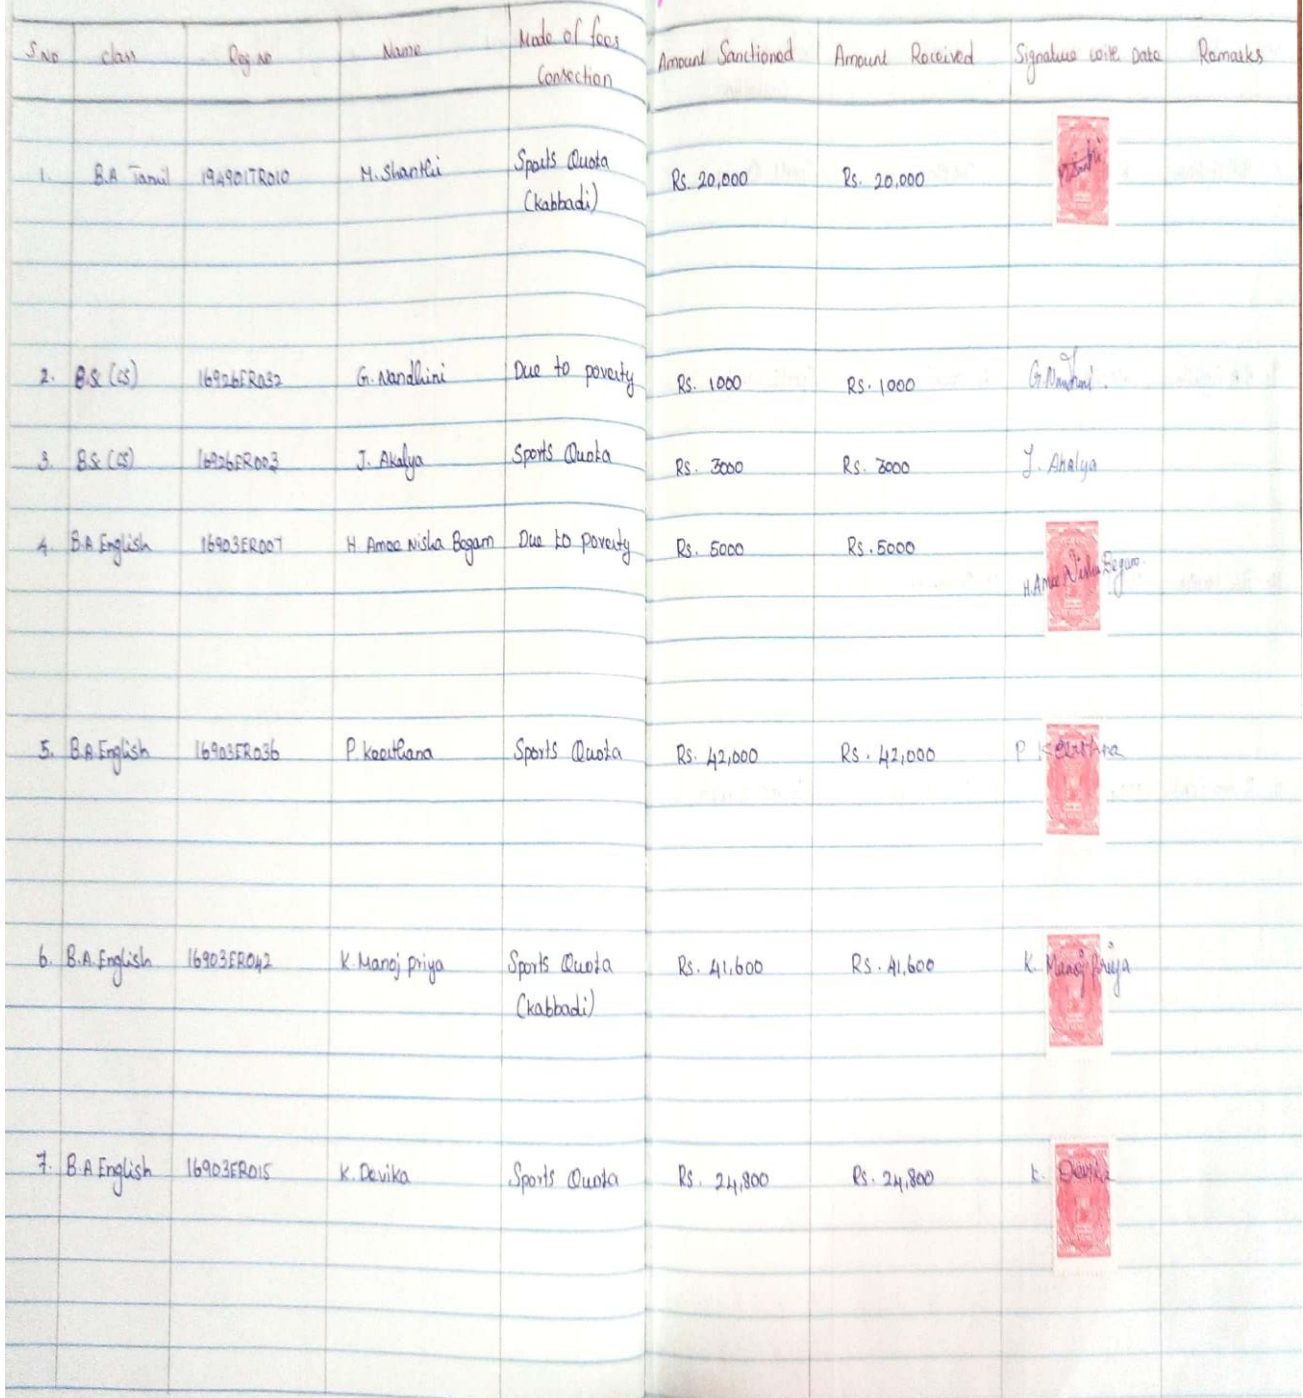 S.No Class Reg No Name Mode of fees Consection Amount Sanctioned Amount Received Signature with Date Remarks
1. B.A Tamil 194901TR010 M. Shanthi Sports Quota (kabbadi) Rs. 20,000 Rs. 20,000
2. B.Sc (CS) 16926ER032 G. Nandhini Due to poverty Rs. 1000 Rs. 1000 G. Nandhini.
3. B.Sc (CS) 16926ER003 J. Akalya Sports Quota Rs. 3000 Rs. 3000 J. Akalya
4. B.A English 16903ER007 H. Amee Nisha Begam Due to poverty Rs. 5000 Rs. 5000 H. Amee Nisha Begam.
5. B.A English 16903ER036 P. Keerthana Sports Quota Rs. 42,000 Rs. 42,000 P Keerthana
6. B.A. English 16903ER042 K. Manoj priya Sports Quota (kabbadi) Rs. 41,600 Rs. 41,600 K. Manoj Priya
7. B.A English 16903ER015 K. Devika Sports Quota Rs. 24,800 Rs. 24,800 K. Devika